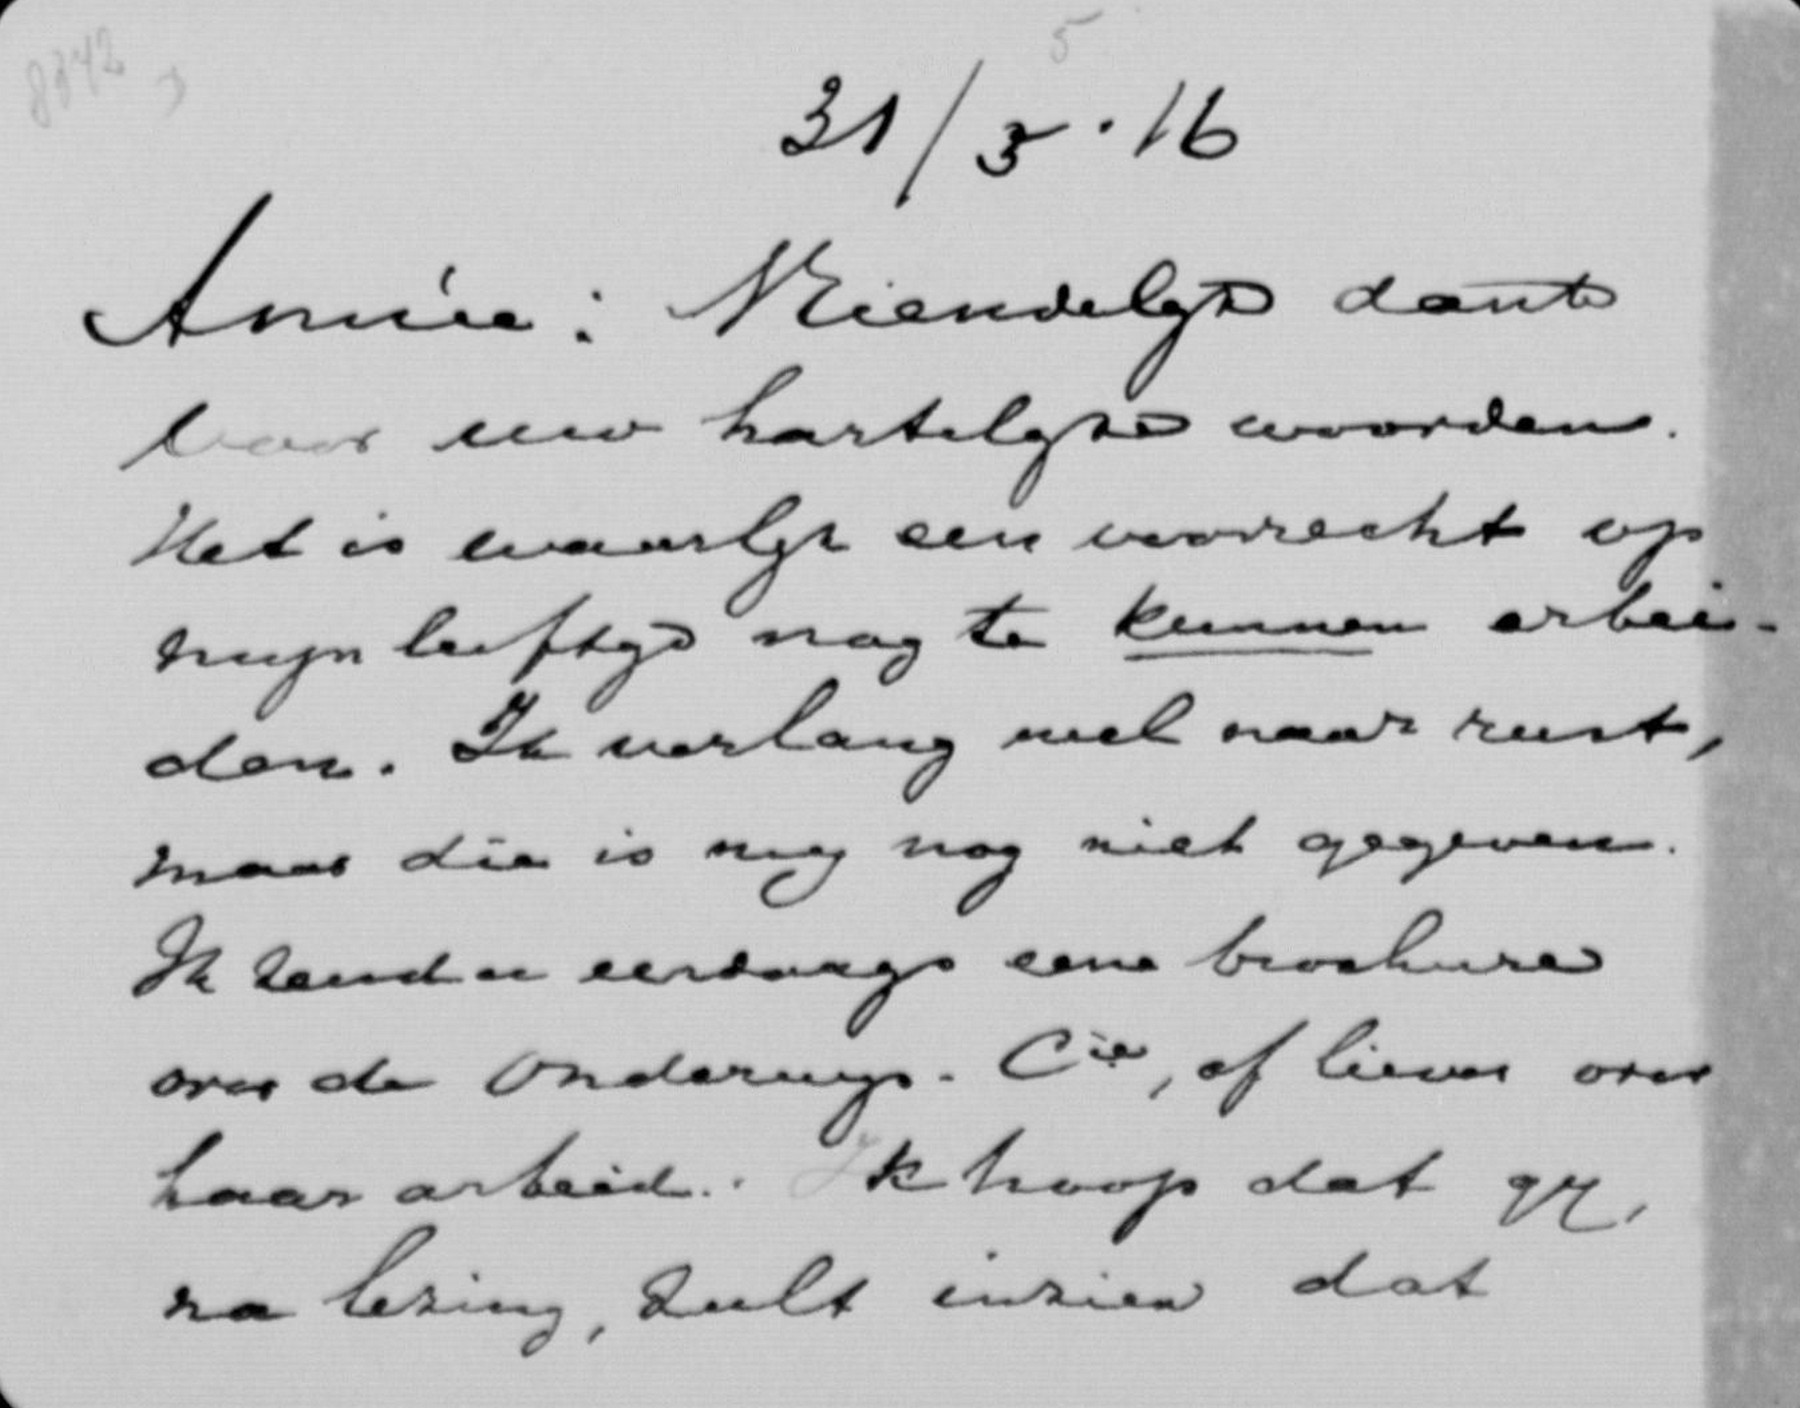 8342
5
31/5.16
Amice: Vriendelijk dank
voor uw hartelijke woorden.
Het is waarlijk een voorrecht op
mijn leeftijd nog te kunnen arbei-
den. Ik verlang wel naar rust,
maar die is mij nog niet gegeven.
Ik zend u eerdaags eene brochure
over de Onderwijs-Cie, of liever over
haar arbeid. Ik hoop dat gij,
na lezing, zult inzien dat